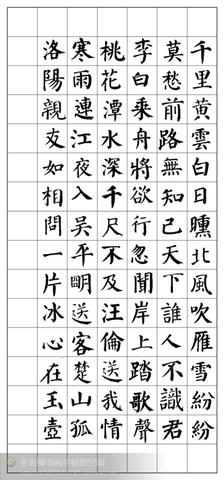 千里黃雲白日曛北風吹雁雪紛紛
莫愁前路無知己天下誰人不識君
李白乘舟將欲行忽聞岸上踏歌聲
桃花潭水深千尺不及汪倫送我情
寒雨連江夜入吳平明送客楚山孤
洛陽親友如相問一片冰心在玉壺
老师书画学校的空间